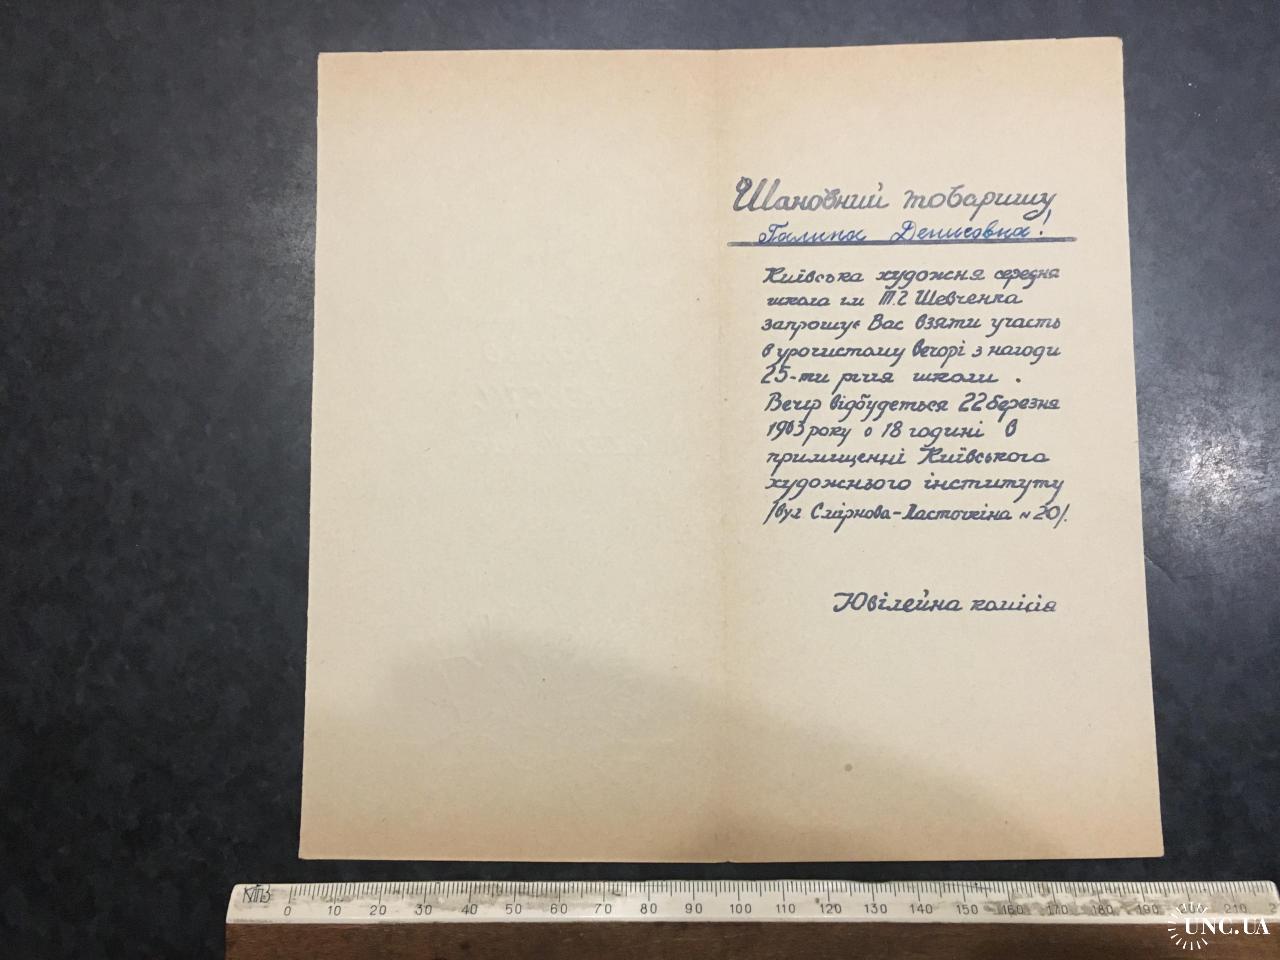 Шановний товаришу
Галина Денисовна!
Київська художня середня
школа ім Т.Г Шевченка
запрошує Вас взяти участь
в урочистому вечорі з нагоди
25-ти річчя школи.
Вечір відбудеться 22 березня
1963 року о 18 годині в
приміщенні Київського
художнього інституту
/вул Смірнова-Ласточкіна №20/.
Ювілейна комісія
0 10 20 30 40 50 60 70 80 90 100 110 120 130 140 150 160 170 180 190 200 210
UNC.UA